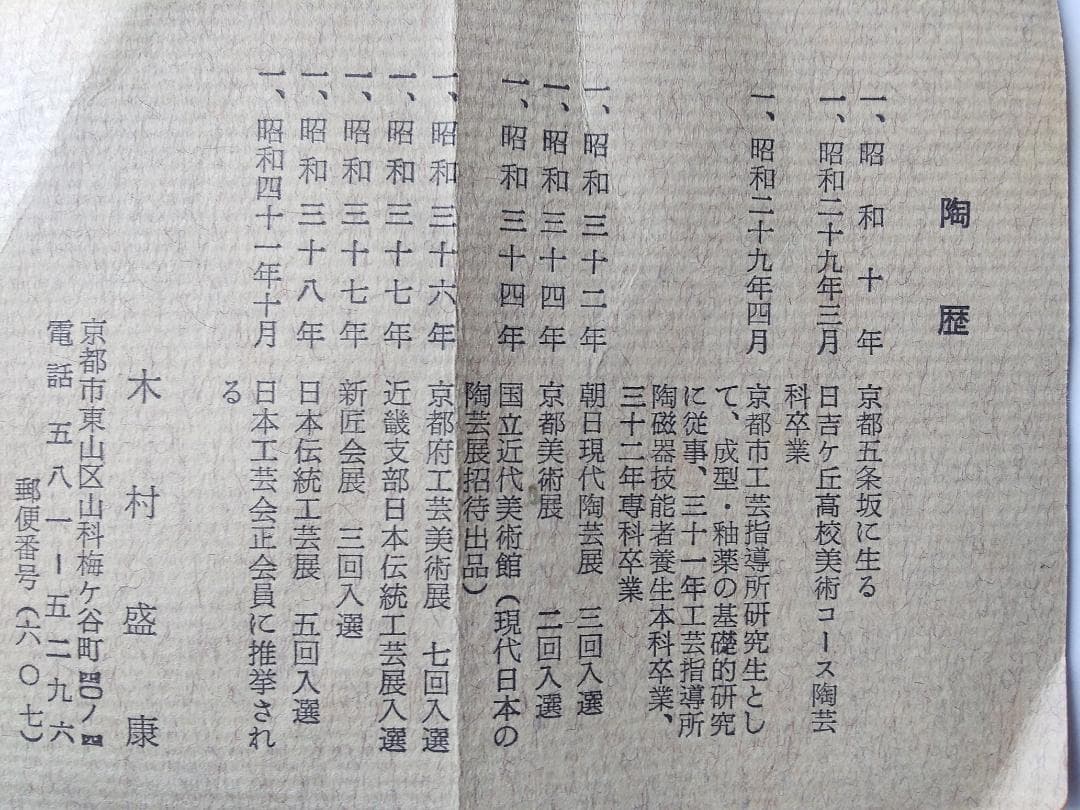 陶歴
一、昭和十年 京都五条坂に生る
一、昭和二十九年三月 日吉ケ丘高校美術コース陶芸
科卒業
一、昭和二十九年四月 京都市工芸指導所研究生とし
て、成型・釉薬の基礎的研究
に従事、三十一年工芸指導所
陶磁器技能者養生本科卒業、
三十二年専科卒業
一、昭和三十二年 朝日現代陶芸展 三回入選
一、昭和三十四年 京都美術展 二回入選
一、昭和三十四年 国立近代美術館(現代日本の
陶芸展招待出品)
一、昭和三十六年 京都府工芸美術展 七回入選
一、昭和三十七年 近畿支部日本伝統工芸展入選
一、昭和三十七年 新匠会展 三回入選
一、昭和三十八年 日本伝統工芸展 五回入選
一、昭和四十一年十月 日本工芸会正会員に推挙され
る
木村盛康
京都市東山区山科梅ケ谷町四〇ノ四
電話 五八一ー五二九六
郵便番号(六〇七)